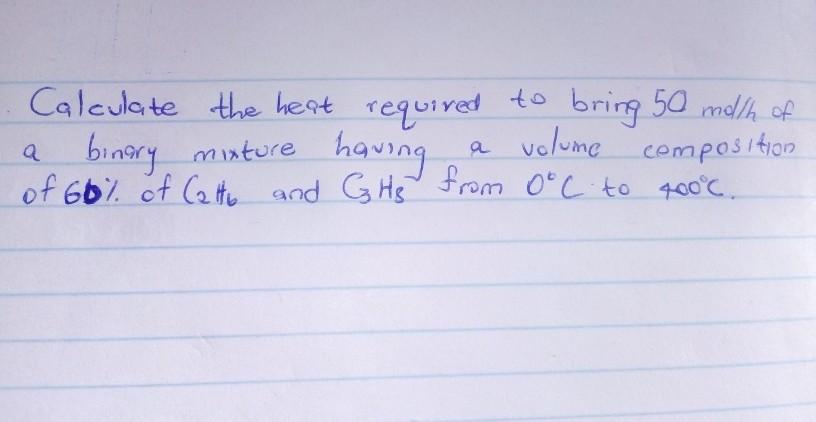 Calculate the heat required to bring 50 mol/h of
a binary mixture having a volume composition
of 60% of C2H6 and C3H8 from 0°C to 400°C.